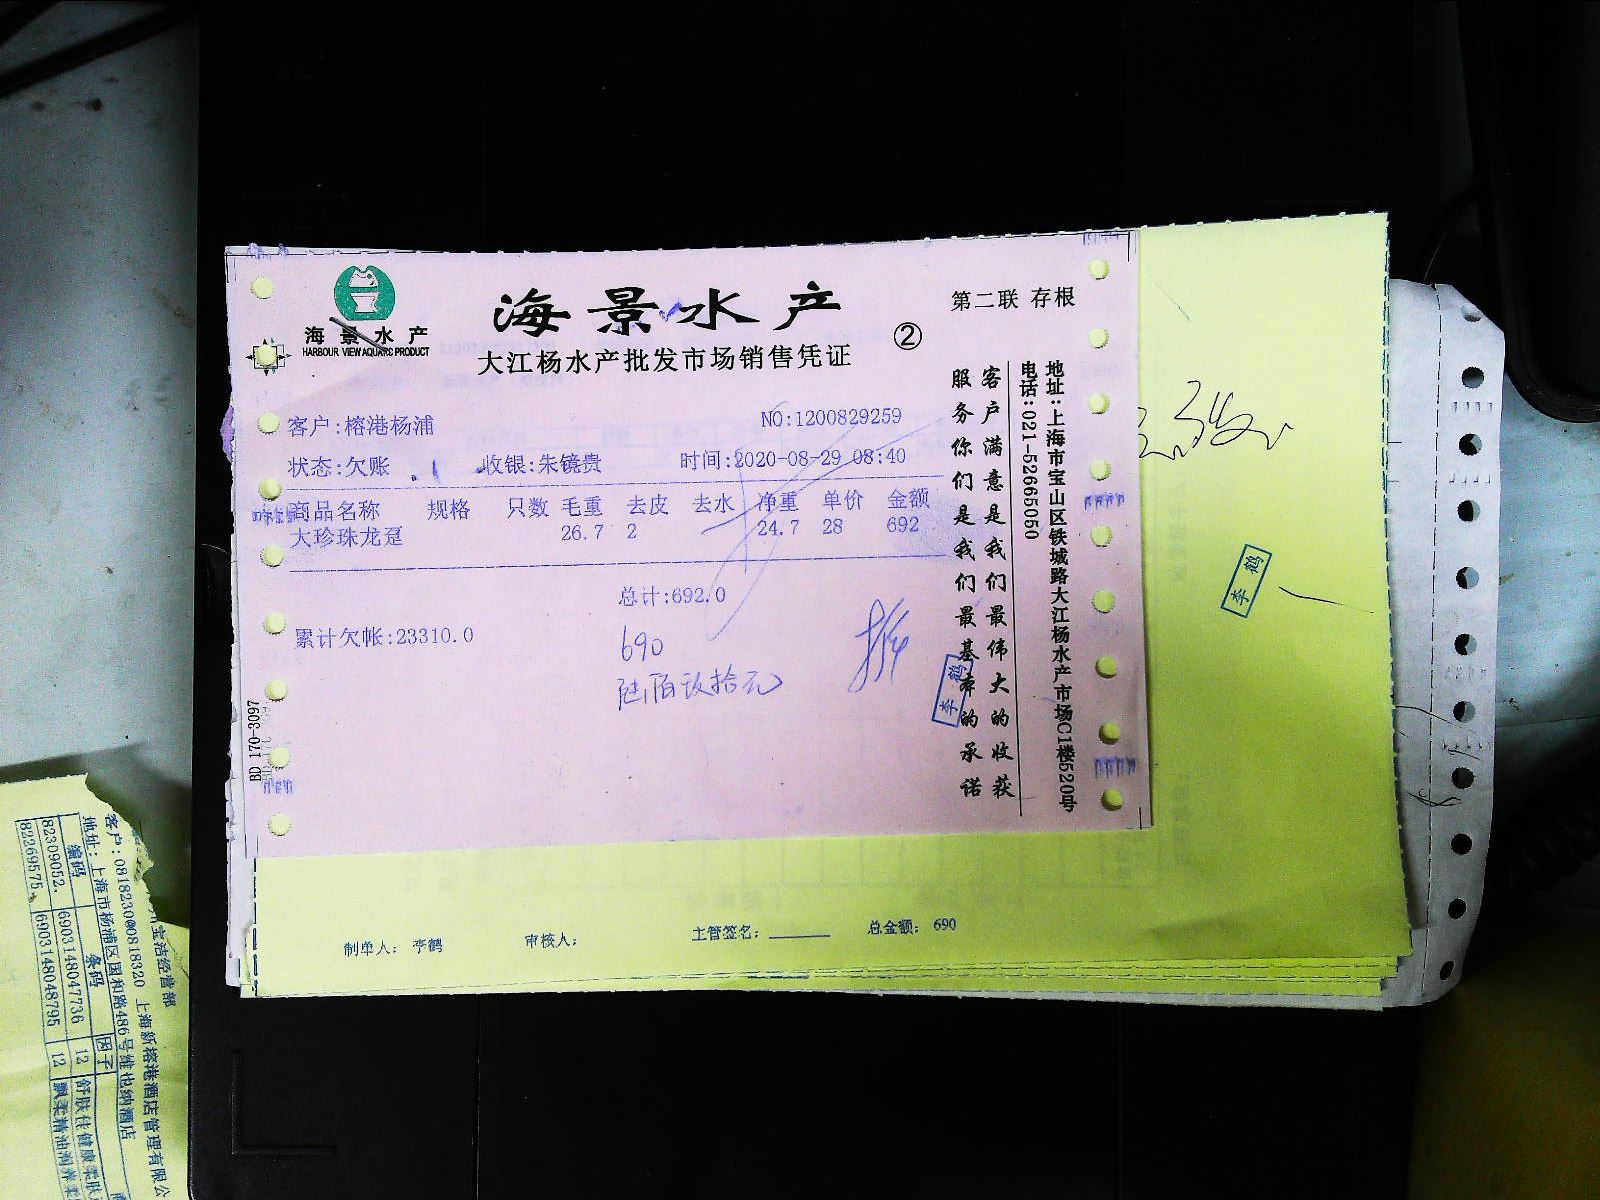 海景水产
HARBOUR VIEW AQUATIC PRODUCT
海景水产
大江杨水产批发市场销售凭证
②
第二联 存根
客户:榕港杨浦
NO:1200829259
状态:欠账
收银:朱镜贵
时间:2020-08-29 08:40
商品名称 规格 只数 毛重 去皮 去水 净重 单价 金额
大珍珠龙趸 26.7 2 24.7 28 692
总计:692.0
累计欠帐:23310.0
690
陆佰玖拾元
李鹤
客户满意是我们最伟大的收获
服务你们是我们最基本的承诺
地址:上海市宝山区铁城路大江杨水产市场C1楼520号
电话:021-52665050
BD 170-3097
李鹤
制单人: 李鹤
审核人:
主管签名:
总金额: 690
宝洁经营部
客户:0818230@0818320 上海新榕港酒店管理有限公
地址:上海市杨浦区国和路486号维也纳酒店
编码 条码 因子
82309052 6903148047736 12 舒肤佳健康柔肤
82269575 6903148048795 12 飘柔精油润养柔